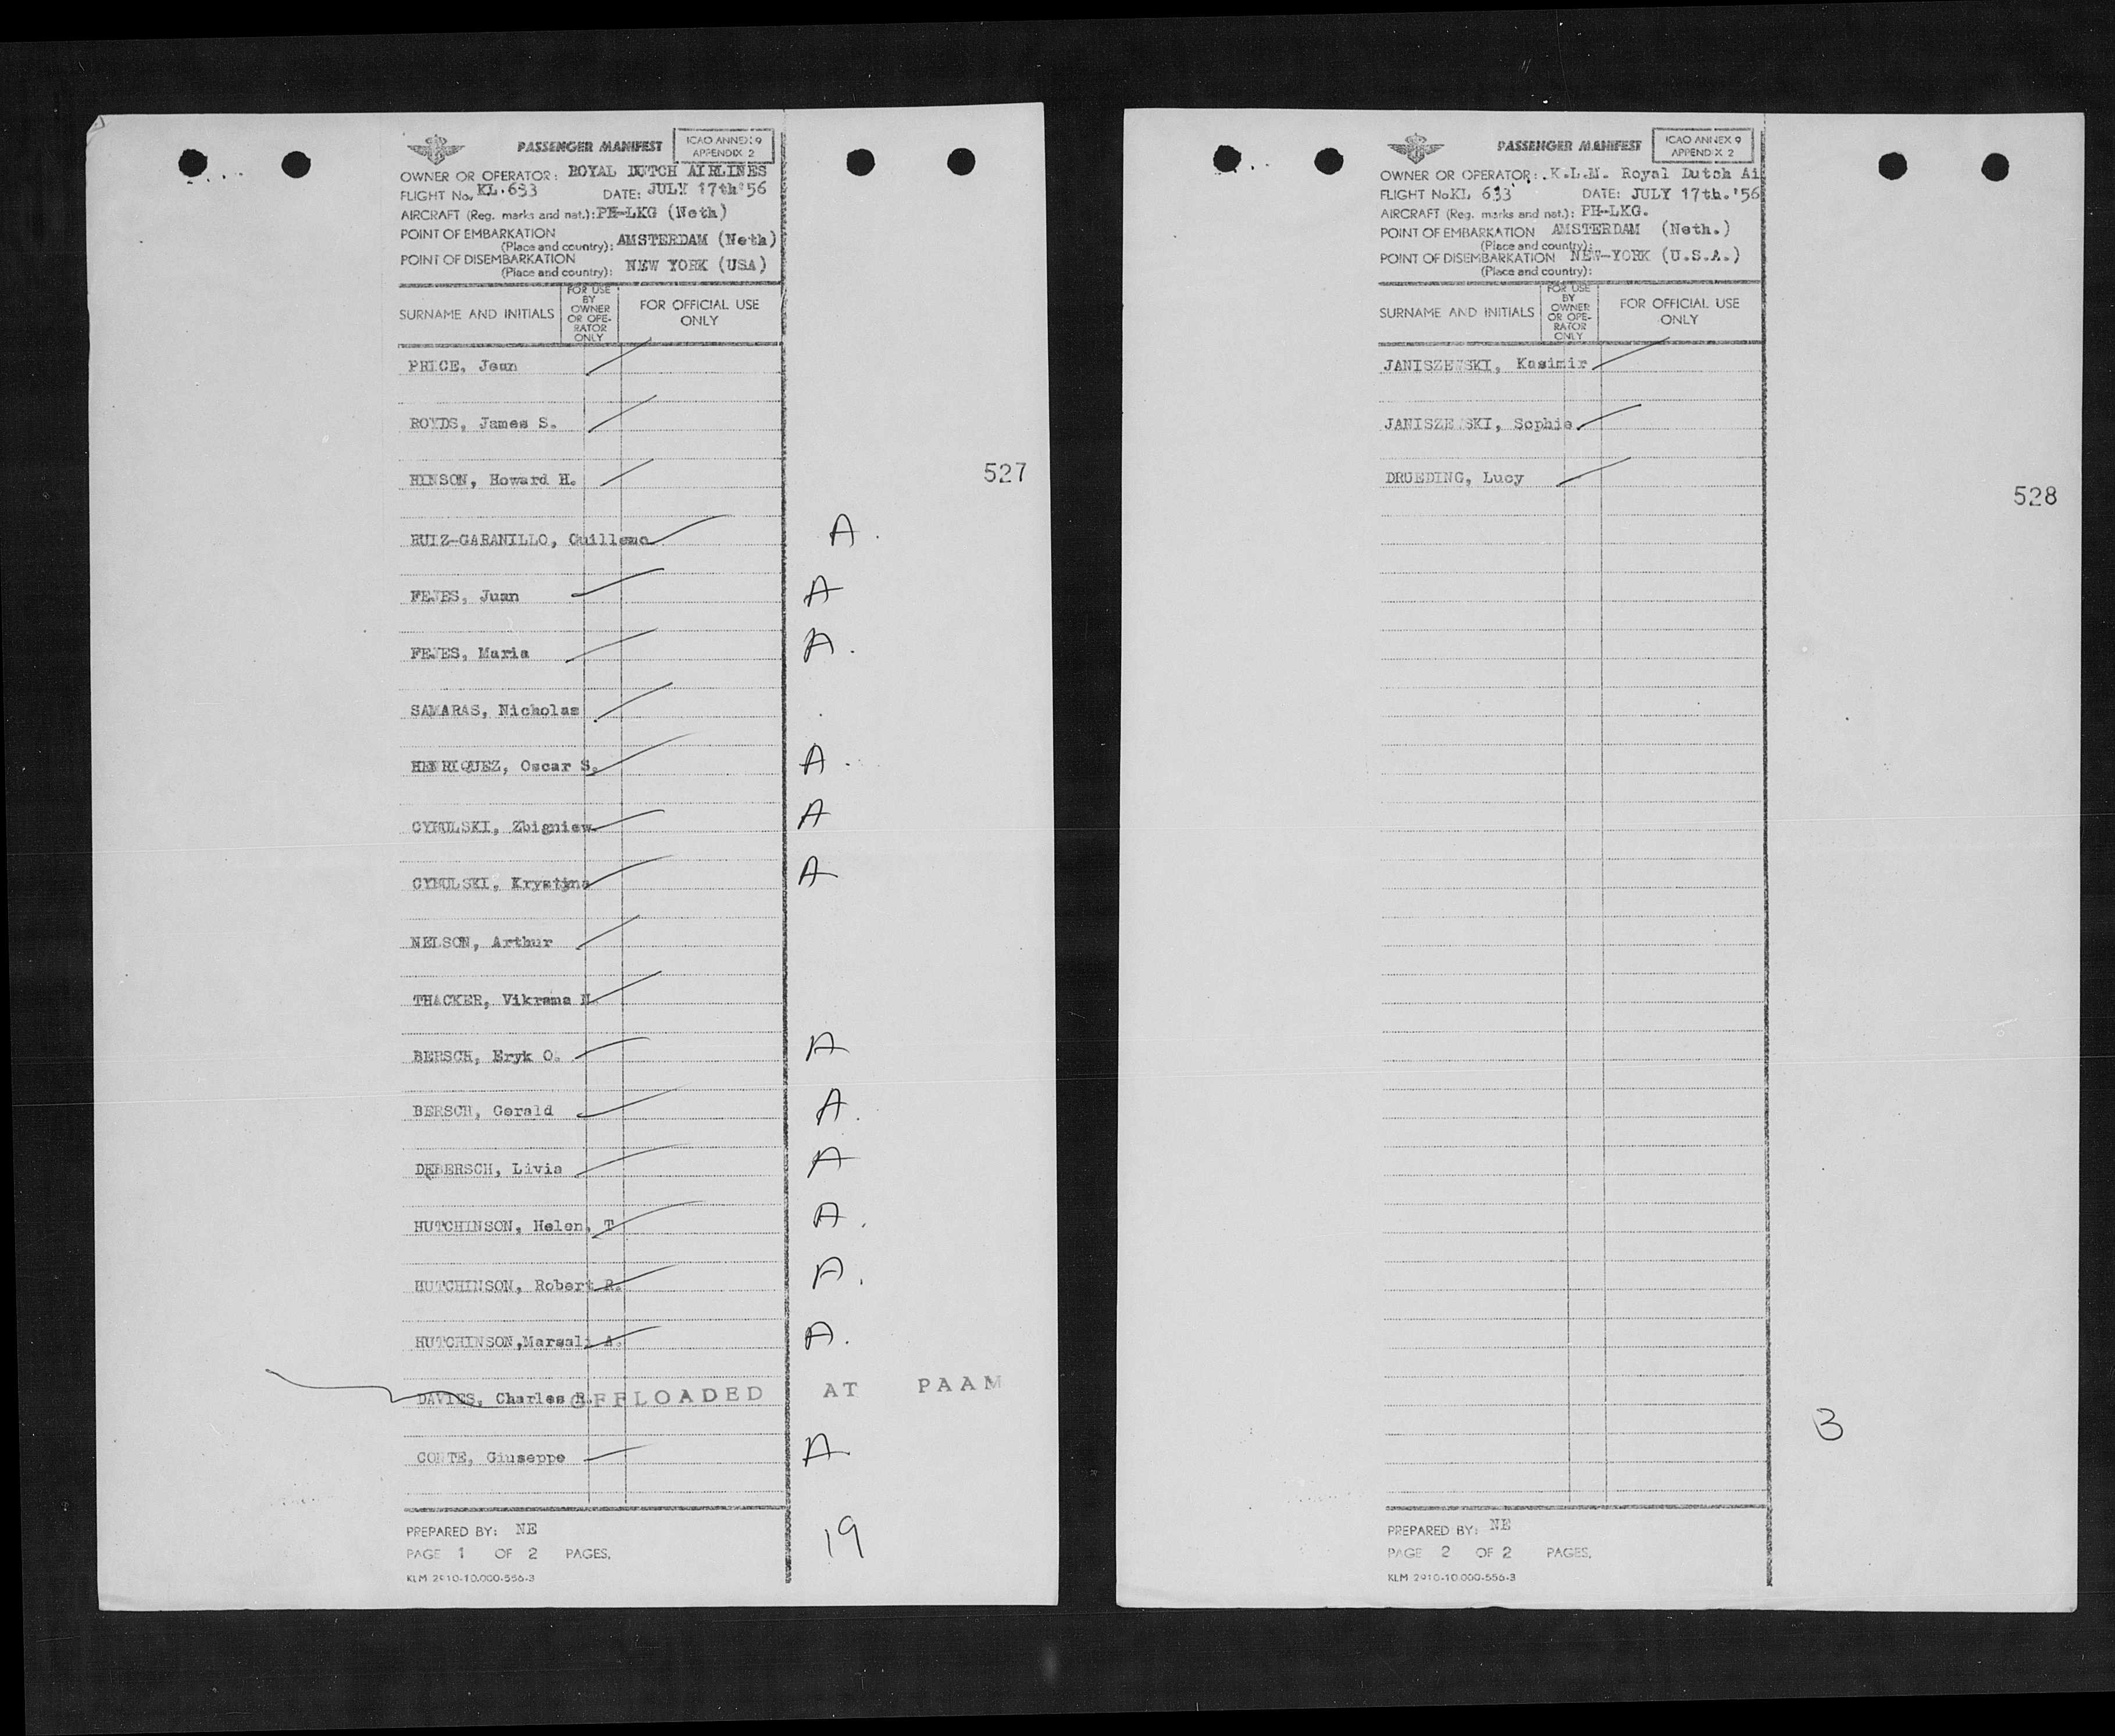 PASSENGER MANIFEST
ICAO ANNEX 9
APPENDIX 2
OWNER OR OPERATOR: ROYAL DUTCH AIRLINES
FLIGHT No. KL.633 DATE: JULY 17th'56
AIRCRAFT (Reg. marks and nat.): PH-LKG (Neth)
POINT OF EMBARKATION
(Place and country): AMSTERDAM (Neth)
POINT OF DISEMBARKATION
(Place and country): NEW YORK (USA)
SURNAME AND INITIALS
FOR USE
BY
OWNER
OR OPE-
RATOR
ONLY
FOR OFFICIAL USE
ONLY
PRICE, Jean
ROYDS, James S.
HINSON, Howard H.
527
RUIZ-GARANILLO, Guillemo A.
FEJES, Juan A
FEJES, Maria A.
SAMARAS, Nicholas
HENRIQUEZ, Oscar S. A.
CYBULSKI, Zbigniew A
CYBULSKI, Krystyna A
NELSON, Arthur
THACKER, Vikrama N.
BERSCH, Eryk O. A
BERSCH, Gerald A.
DEBERSCH, Livia A
HUTCHINSON, Helen, T A.
HUTCHINSON, Robert R. A.
HUTCHINSON,Marsali A. A.
DAVIES, Charles R. OFFLOADED AT PAAM
CONTE, Giuseppe A
PREPARED BY: NE
19
PAGE 1 OF 2 PAGES.
KLM 2910-10.000-556-3
PASSENGER MANIFEST
ICAO ANNEX 9
APPENDIX 2
OWNER OR OPERATOR: K.L.M. Royal Dutch Ai
FLIGHT No KL 633 DATE: JULY 17th.'56
AIRCRAFT (Reg. marks and nat.): PH-LKG.
POINT OF EMBARKATION AMSTERDAM (Neth.)
(Place and country):
POINT OF DISEMBARKATION NEW-YORK (U.S.A.)
(Place and country):
SURNAME AND INITIALS
FOR USE
BY
OWNER
OR OPE-
RATOR
ONLY
FOR OFFICIAL USE
ONLY
JANISZEWSKI, Kasimir
JANISZEWSKI, Sophie
DRUEDING, Lucy
528
3
PREPARED BY: NE
PAGE 2 OF 2 PAGES.
KLM 2910-10.000-556-3